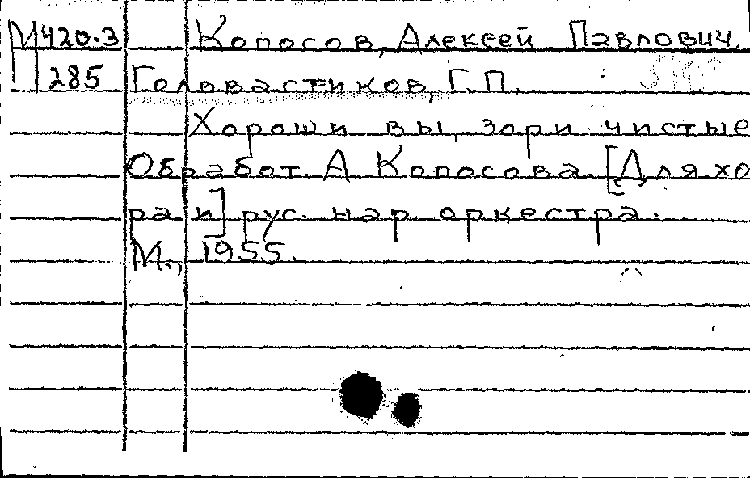 М420.3 Копосов, Алексей Павлович.
П285 Головастиков, Г. П.
Хороши вы, зори чистые
Обработ. А Копосова. [Для хо
ра и] рус. нар оркестра.
М., 1955.